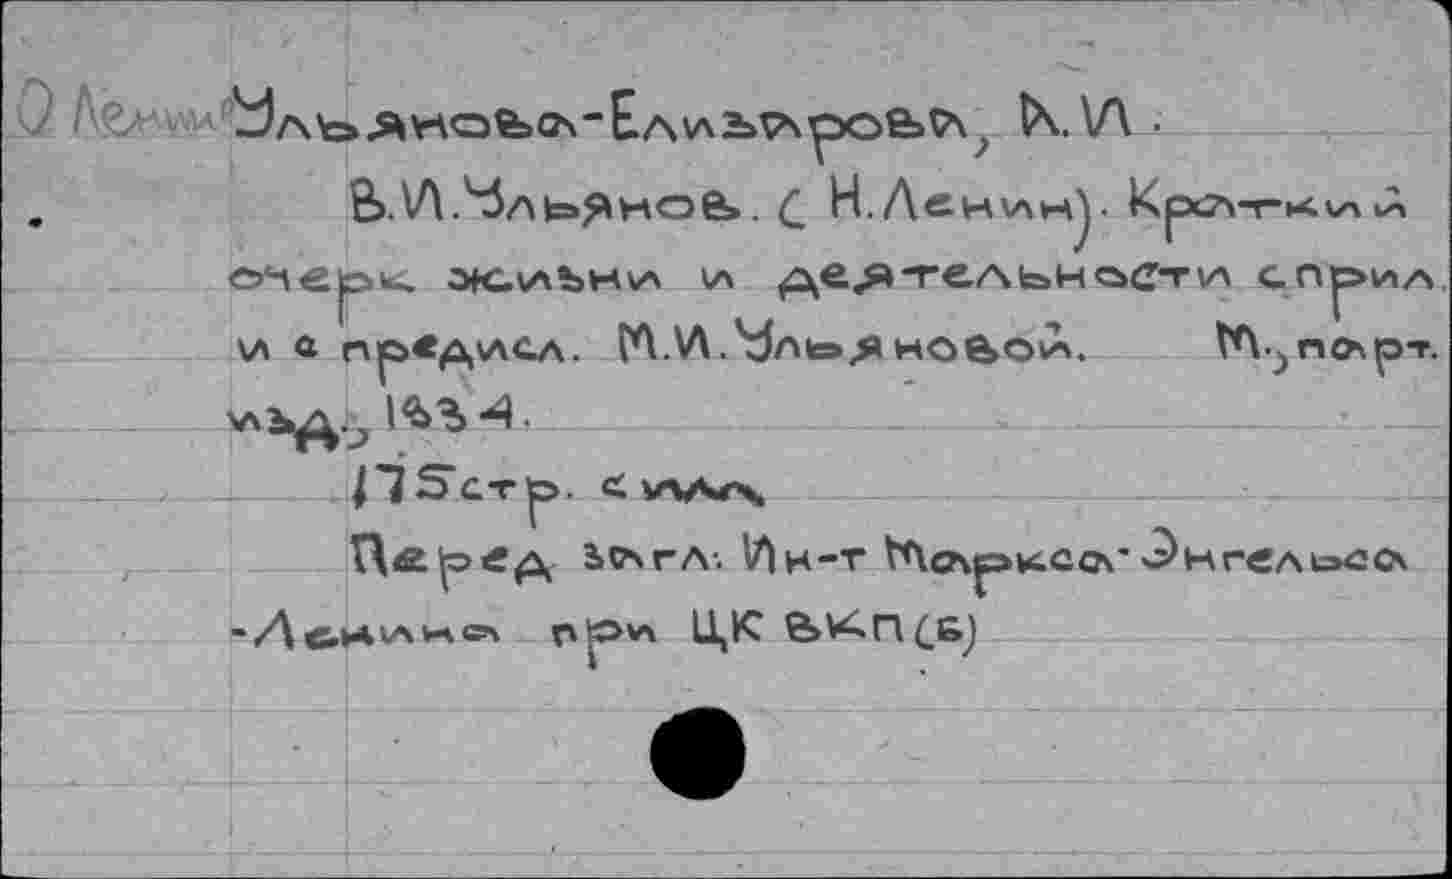 О Ленин Ульянова-Елизарова, А. И.
В.И.Ульянов. (Н.Ленин). Краткий
очерк жизни и деятельности с прил.
и с предисл. М.И.Ульяновой. М., парт.
изд., 1934.
175 стр. с илл.
Перед загл.: Ин-т Маркса-Энгельса
-Ленина при ЦК ВКП(б)